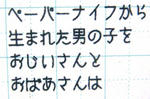 ペーパーナイフから
生まれた男の子を
おじいさんと
おばあさんは